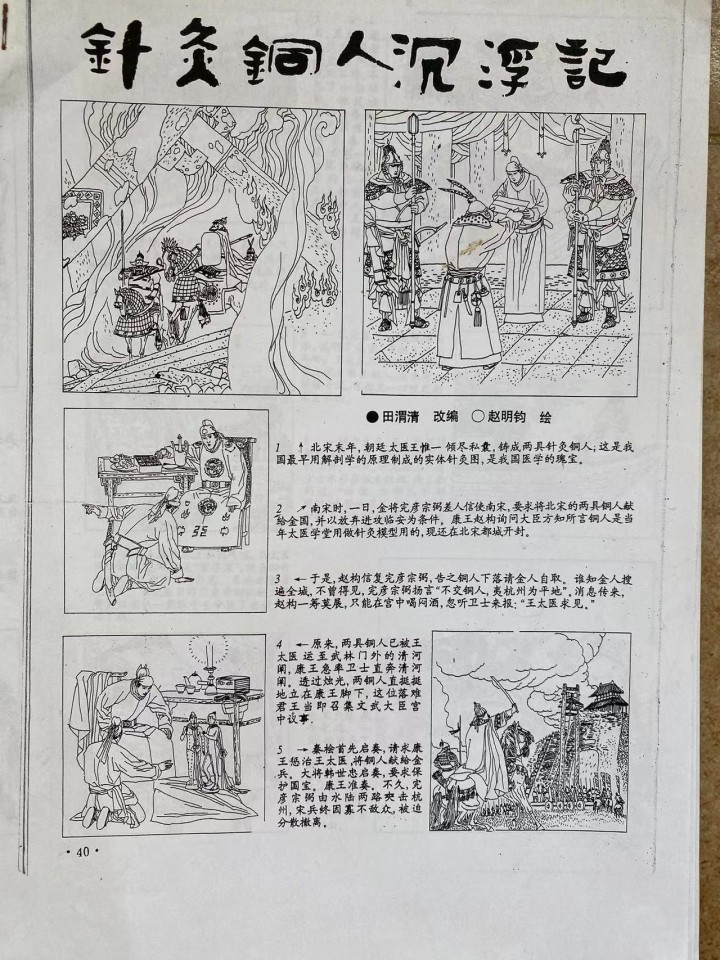 針灸銅人沉浮記
●田渭清 改编 ○赵明钧 绘
1 ↑ 北宋末年,朝廷太医王惟一倾尽私囊,铸成两具针灸铜人;这是我
国最早用解剖学的原理制成的实体针灸图,是我国医学的瑰宝。
2 ↗南宋时,一日,金将完彦宗弼差人信使南宋,要求将北宋的两具铜人献
给金国,并以放弃进攻临安为条件。康王赵构询问大臣方知所言铜人是当
年太医学堂用做针灸模型用的,现还在北宋都城开封。
3 ←于是,赵构信复完彦宗弼,告之铜人下落请金人自取。谁知金人搜
遍全城,不曾得见,完彦宗弼扬言“不交铜人,夷杭州为平地”。消息传来,
赵构一筹莫展,只能在宫中喝闷酒,忽听卫士来报:“王太医求见。”
4 ←原来,两具铜人已被王
太医运至武林门外的清河
阐,康王急率卫士直奔清河
阐,透过烛光,两铜人直挺挺
地立在康王脚下,这位落难
君王当即召集文武大臣宫
中议事.
5 →秦桧首先启奏,请求康
王惩治王太医,将铜人献给金
兵。大将韩世忠启奏,要求保
护国宝。康王准奏。不久,完
彦宗弼由水陆两路突击杭
州,宋兵终因寡不敌众,被迫
分散撤离。
·40·